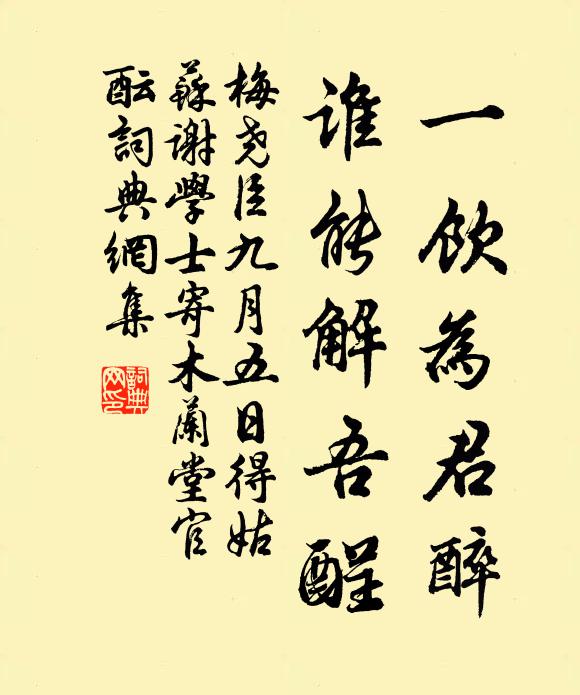 一飲為君醉
誰能解吾酲
梅堯臣九月五日得姑
蘇謝學士寄木蘭堂官
醞詞典網集
詞典
网印